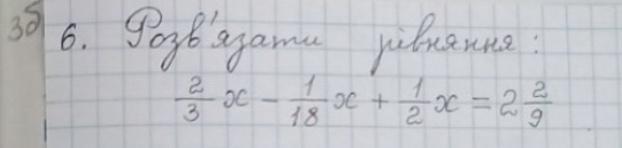 3б
6. Розв'язати рівняння:
2/3 x - 1/18 x + 1/2 x = 2 2/9